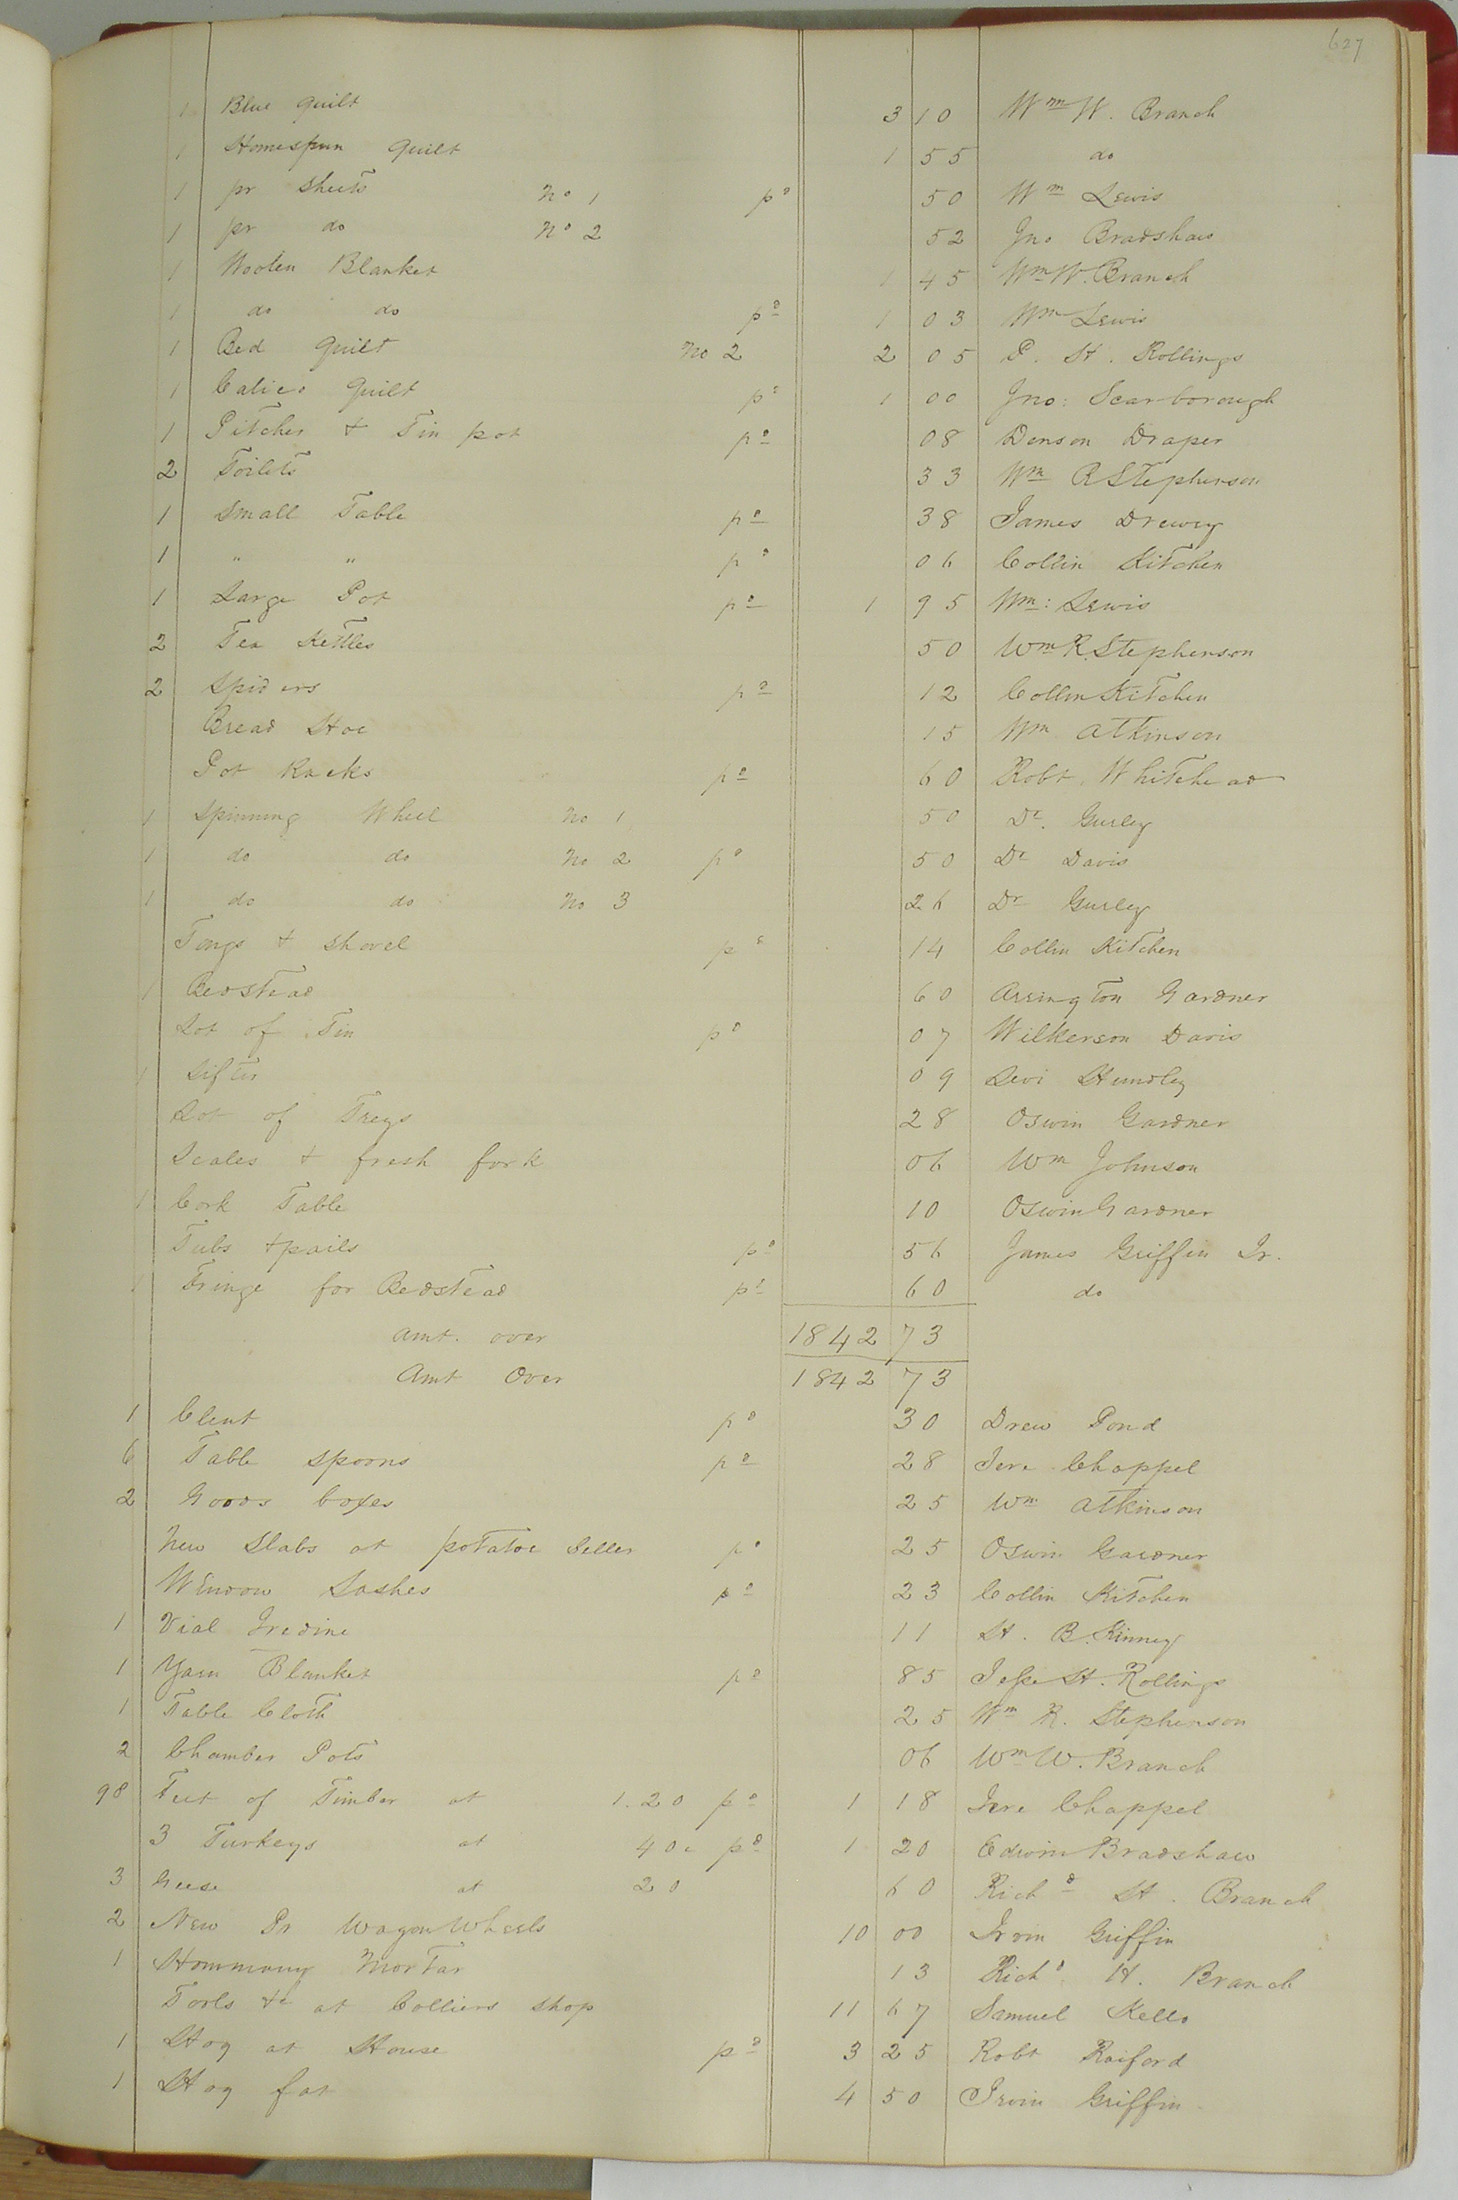 627
1 Blue quilt 3 10 Wm W. Branch
1 Homespun quilt 1 55 do
1 pr sheets No 1 pd 50 Wm Lewis
1 pr do No 2 52 Jno Bradshaw
1 Woolen Blanket 1 45 Wm W. Branch
1 do do pd 1 03 Wm Lewis
1 Bed quilt No 2 2 05 P. H. Rollings
1 Calico quilt pd 1 00 Jno: Scarborough
1 Pitcher & Tin pot pd 08 Denson Draper
2 Toilets 33 Wm R Stephenson
1 Small Table pd 38 James Drewey
1 " " pd 06 Collin Kitchen
1 Large Pot pd 1 95 Wm: Lewis
2 Tea Kettles 50 Wm R. Stephenson
2 Spiders pd 12 Collin Kitchen
Bread Hoe 15 Wm Atkinson
Pot Racks pd 60 Robt Whitehead
1 Spinning Wheel No 1 50 Dr. Gurley
1 do do No 2 pd 50 Dr Davis
1 do do No 3 26 Dr Gurley
Tongs & shovel pd 14 Collin Kitchen
1 Bedstead 60 Arrington Gardner
Lot of Tin pd 07 Wilkerson Davis
1 Sifter 09 Levi Hundley
Lot of Treys 28 Oswin Gardner
Scales & fresh fork 06 Wm Johnson
1 Cork Table 10 Oswin Gardner
Tubs & pails pd 56 James Griffin Jr.
1 Fringe for Bedstead pd 60 do
Amt. over 1842 73
Amt Over 1842 73
1 Clent pd 30 Drew Pond
6 Table spoons pd 28 Jere Chappel
2 Goods boxes 25 Wm Atkinson
New Slabs at potatoe Seller pd 25 Oswin Gardner
Window Sashes pd 23 Collin Kitchen
1 Vial Iredine 11 H. B. Kinney
1 Yarn Blanket pd 85 Jesse H. Rollings
1 Table Cloth 25 Wm R. Stephenson
2 Chamber Pots 06 Wm W. Branch
98 Feet of Timber at 1.20 pd 1 18 Jere Chappel
3 Turkeys at 40c pd 1 20 Edwin Bradshaw
3 Geese at 20 60 Richd H. Branch
2 New Pr Wagon Wheels 10 00 Irvin Griffin
1 Hommony Mortar 13 Richd. H. Branch
Tools &c at Colliers shop 11 67 Samuel Kello
1 Hog at House pd 3 25 Robt Raiford
1 Hog fat 4 50 Irvin Griffin